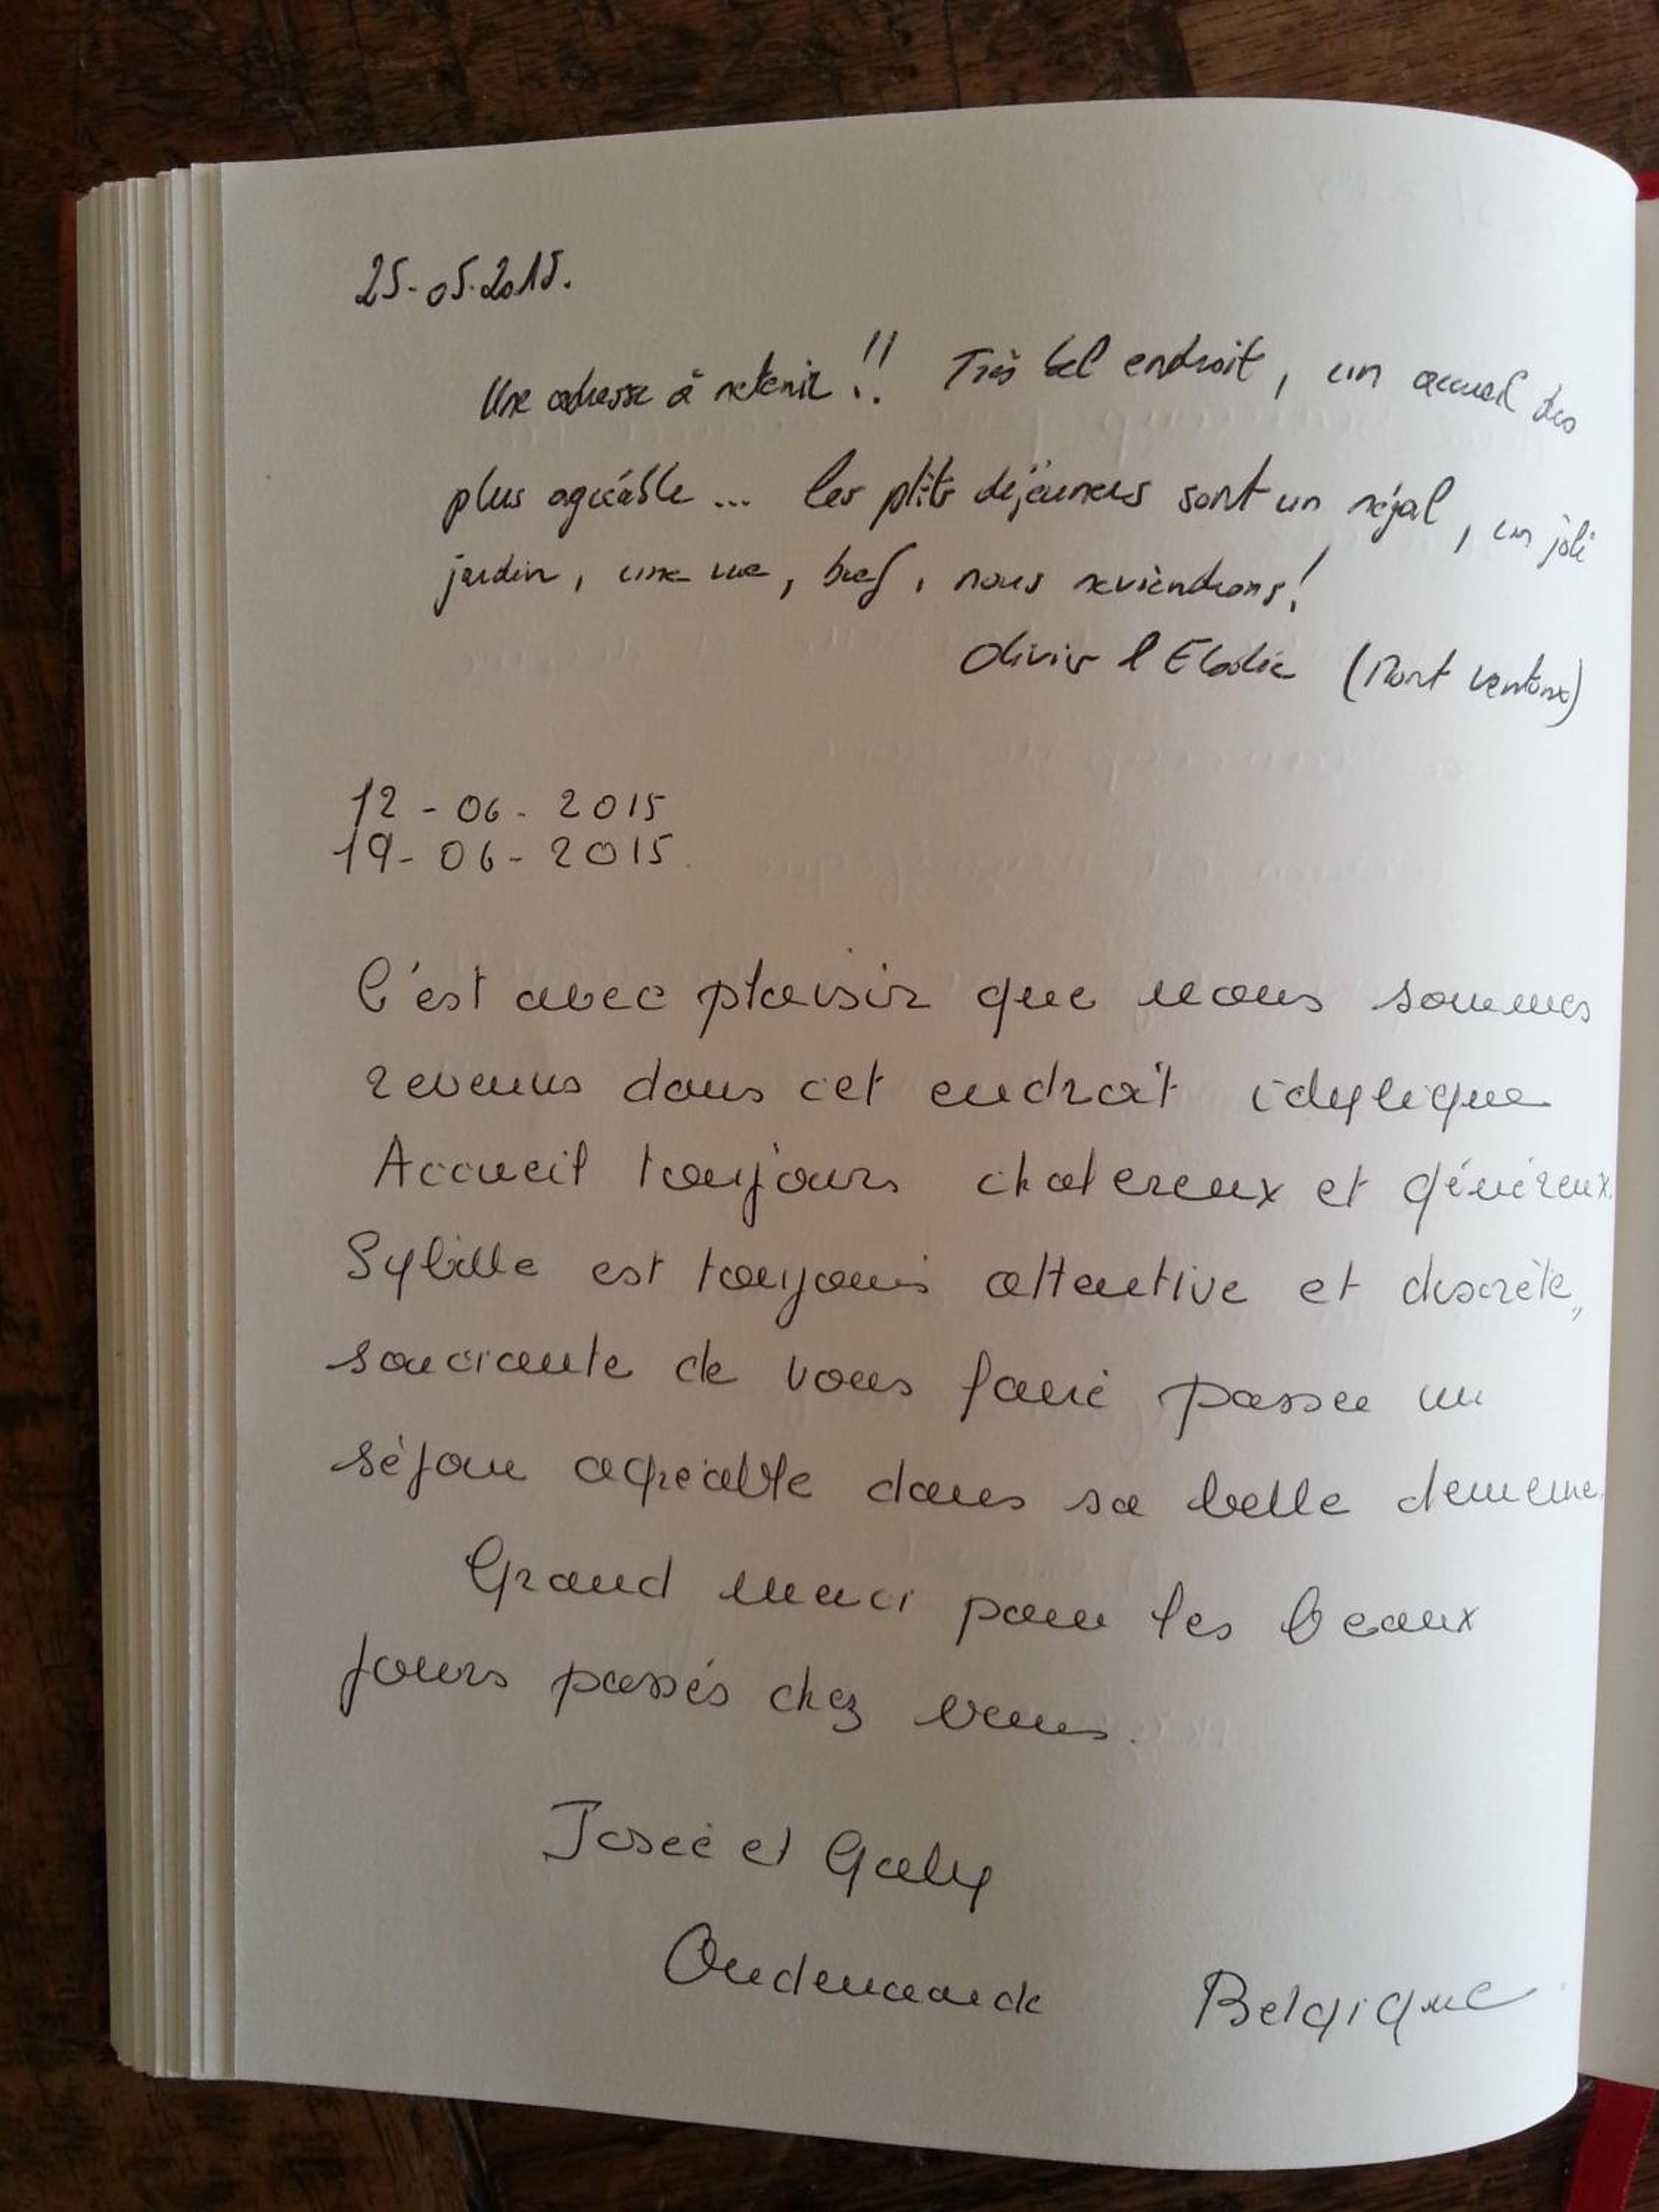 25-05-2015.
Une adresse à retenir !! Très bel endroit, un accueil des
plus agréable ... les ptits déjeuners sont un régal, un joli
jardin, une vue, bref, nous reviendrons !
Olivier & Elodie (Mont Ventoux)
12-06-2015
19-06-2015
C'est avec plaisir que nous sommes
revenus dans cet endroit idylique
Accueil toujours chalereux et généreux.
Sybille est toujours attentive et discrète,
souciante de vous faire passer un
séjour agréable dans sa belle demeure.
Grand merci pour les beaux
jours passés chez vous.
Josée et Gaby
Oudenaarde Belgique